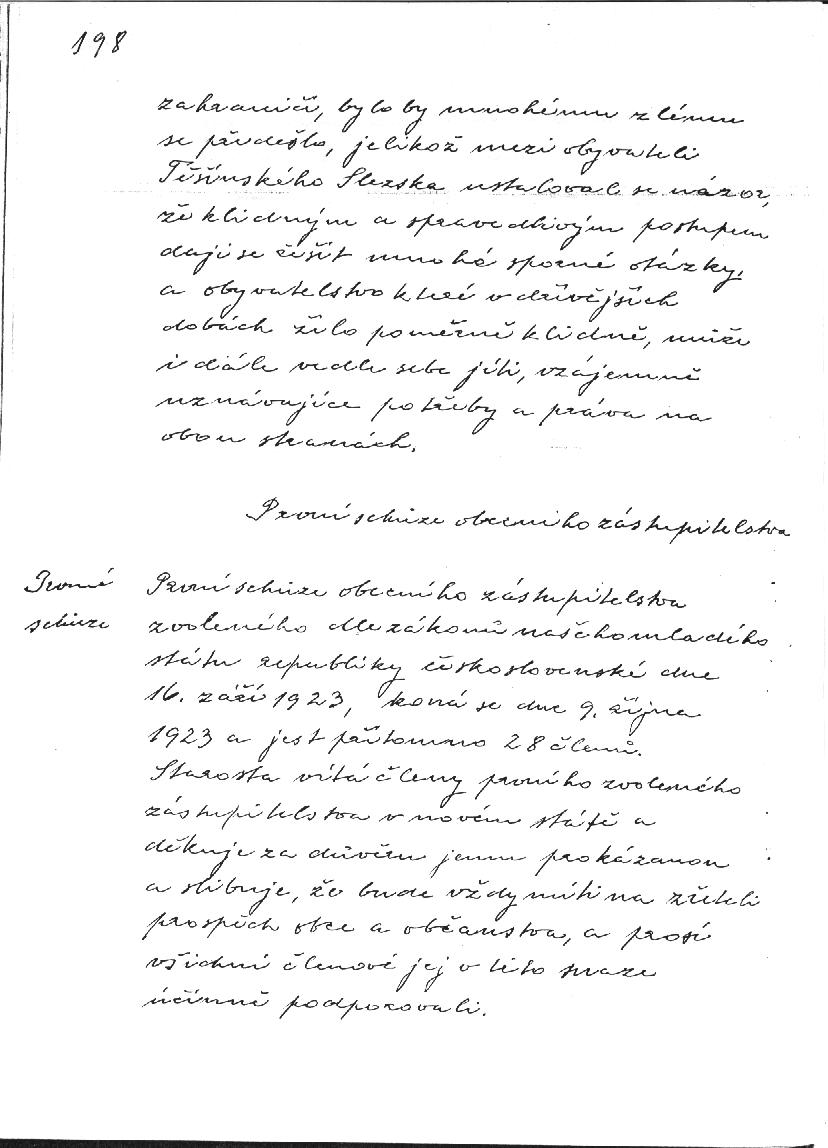 198
zahraničí, bylo by mnohému zlému
se předešlo, jelikož mezi obyvateli
Těšínského Slezska ustaloval se názor,
že klidným a spravedlivým postupem
dají se řešit mnohé sporné otázky,
a obyvatelstvo které v dřívějších
dobách žilo poměrně klidně, může
i dále vedle sebe jíti, vzájemně
uznávajíce potřeby a práva na
obou stranách.
První schůze obecního zastupitelstva
První
schůze
První schůze obecního zastupitelstva
zvoleného dle zákonů našeho mladého
státu republiky československé dne
16. září 1923, koná se dne 9. října
1923 a jest přítomno 28 členů.
Starosta vítá členy prvního zvoleného
zástupitelstva v novém státě a
děkuje za důvěru jemu prokázanou
a slibuje, že bude vždy míti na zřeteli
prospěch obce a občanstva, a prosí
všichni členové jej v této snaze
účinně podporovali.